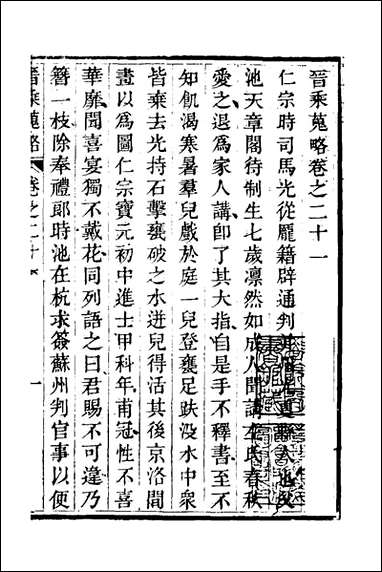 晉乘蒐略卷之二十一
仁宗時司馬光從龐籍辟通判
池天章閣待制生七歲凜然如成人聞講左氏春秋
愛之退爲家人講卽了其大指自是手不釋書至不
知飢渴寒暑羣兒戲於庭一兒登甕足跌沒水中衆
皆棄去光持石擊甕破之水迸兒得活其後京洛間
畫以爲圖仁宗寶元初中進士甲科年甫冠性不喜
華靡聞喜宴獨不戴花同列語之曰君賜不可違乃
簪一枝除奉禮郎時池在杭求簽蘇州判官事以便
晉乘蒐略
卷之二十一
一